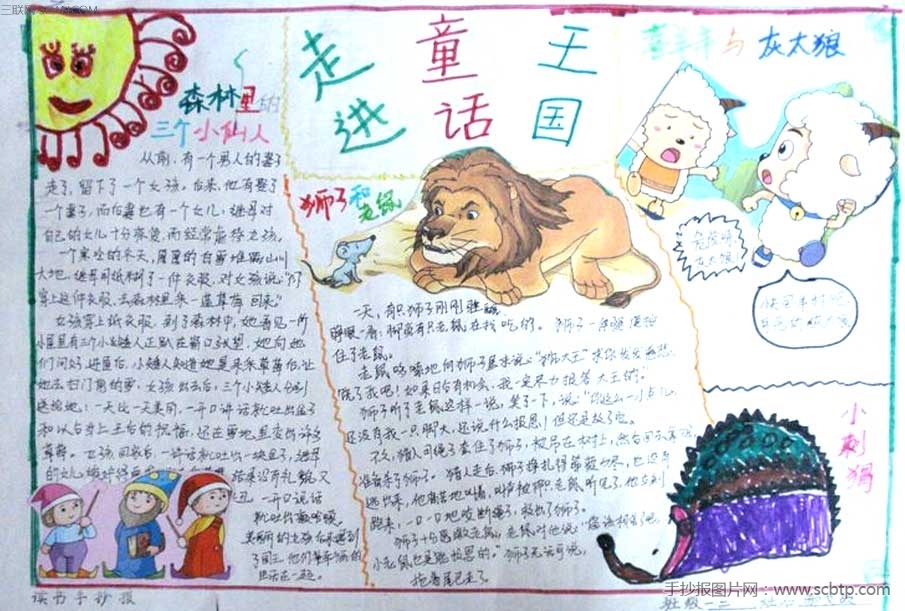 走进童话王国
森林里的
三个小仙人
从前,有一个男人的妻子
走了,留下了一个女孩。后来,他有娶了
一个妻子,而后妻也有一个女儿,继母对
自己的女儿十分疼爱,而经常虐待女孩。
一个寒冷的冬天,厚厚的白雪堆满山川
大地,继母用纸糊了一件衣服,对女孩说:“你
穿上这件衣服,去森林里采一蓝草莓回来。”
女孩穿上纸衣服,到了森林中,她看见一所
小屋里有三个小矮人正趴在窗口张望,她向她
们问好,进屋后,小矮人知道她是来采草莓后,让
她去扫门角的雪,女孩出去后,三个小矮人分别
送给她:一天比一天美丽,一开口讲话就吐出金子
和以后当上王后的祝福,还在雪地里变出许多
草莓。女孩回家后,一讲话就吐出一块金子,继母
的女儿
结果没有礼貌又
丑,一开口说话
就吐出癞蛤蟆。
美丽的女孩后来遇到
了国王,他们幸福的
生活在一起。
狮子和
老鼠
一天,有只狮子刚刚睡醒,
睁眼一看,脚旁有只老鼠在找吃的。狮子一伸腿便拍
住了老鼠。
老鼠哆嗦地向狮子哀求说:“狮大王,求你发发慈悲,
饶了我吧!如果日后有机会,我一定尽力报答大王的。”
狮子听了老鼠这样一说,笑了一下,说:“你这么一小点儿,
还没有我一只脚大,还说什么报恩!但还是放了它。
不久,猎人用绳子套住了狮子,捆吊在树上,然后回去
准备杀了狮子。猎人走后,狮子挣扎得筋疲力尽,也没有
逃出来,他痛苦地叫嚷,叫声被那只老鼠听见了,他立刻
跑来,一口一口地咬断绳子,救出了狮子。
狮子十分感激老鼠,老鼠对他说:“您该相信了吧,
小老鼠也是能报恩的。”狮子无话可说,
拖着尾巴走了。
喜羊羊与灰太狼
危险啊,
灰太狼!
小刺猬
读书手抄报
手抄报图片网:www.scbtp.com